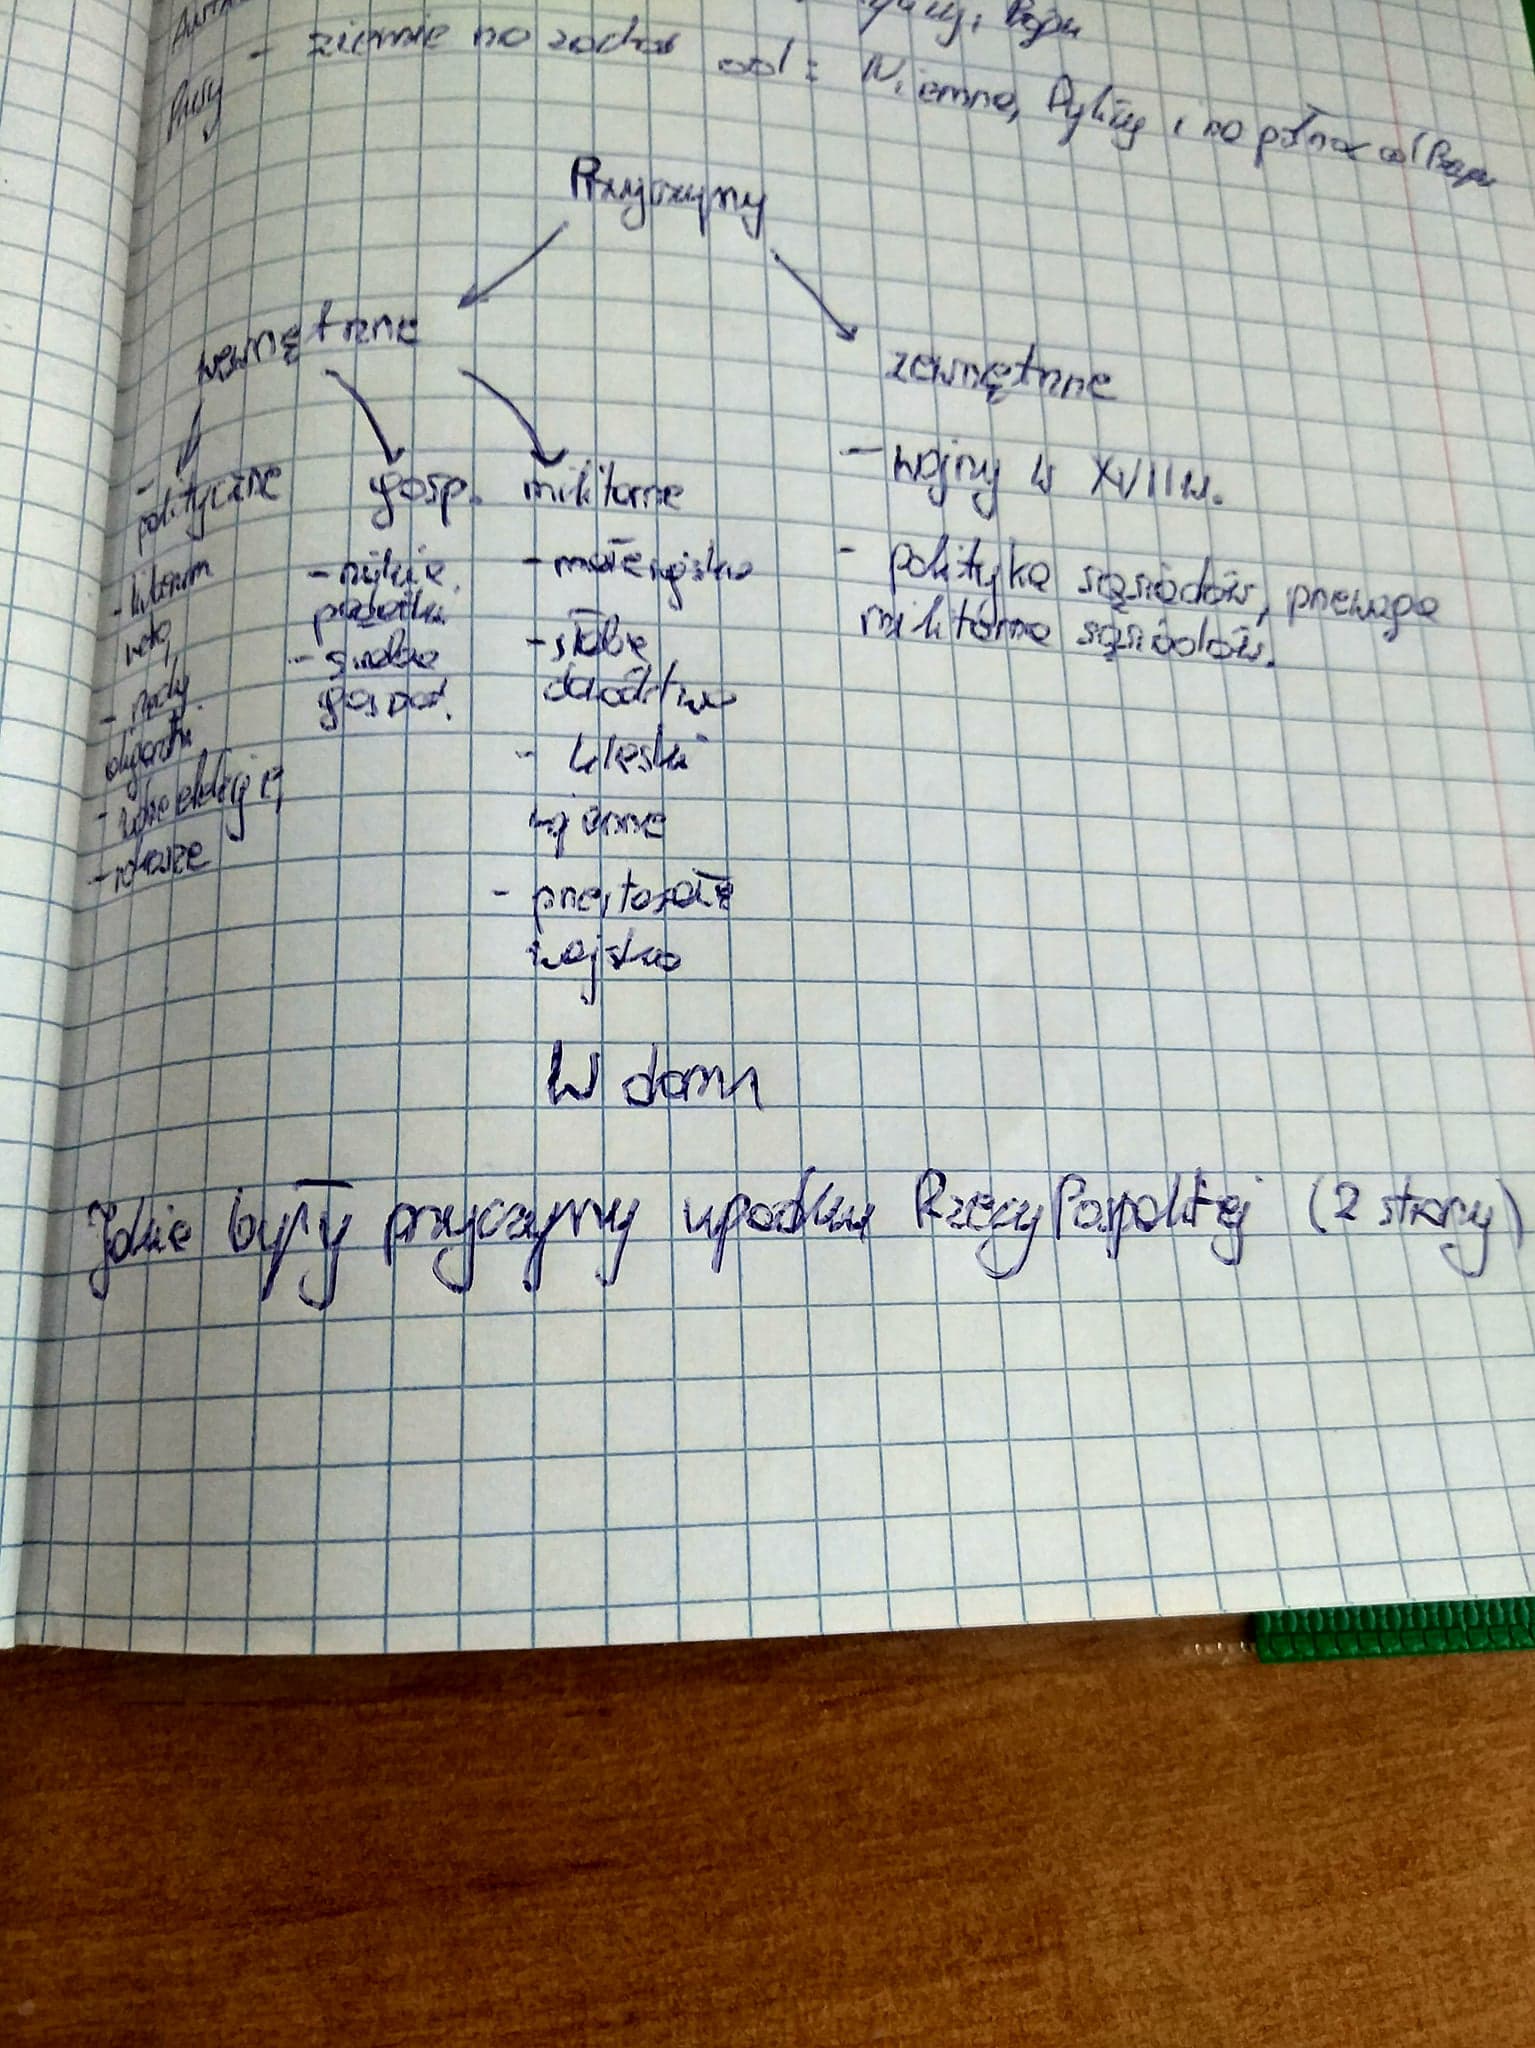 Prusy - ziemie na zachód od: Niemna, Pylicy i na północ od Bugu
Przyczyny
wewnętrzne
zewnętrzne
- polityczne
gosp.
militarne
- wojny w XVII w.
- liberum
veto,
- niskie
podatki
- słaba
gospod.
- małe wojsko
- słabe
dowództwo
- klęski
wojenne
- przestarzałe
wojsko
- polityka sąsiadów, przewaga
militarna sąsiadów.
- rządy
oligarchii
- wolne elekcje,
- rokosze
W domu
Jakie były przyczyny upadku RzeczyPospolitej (2 strony)